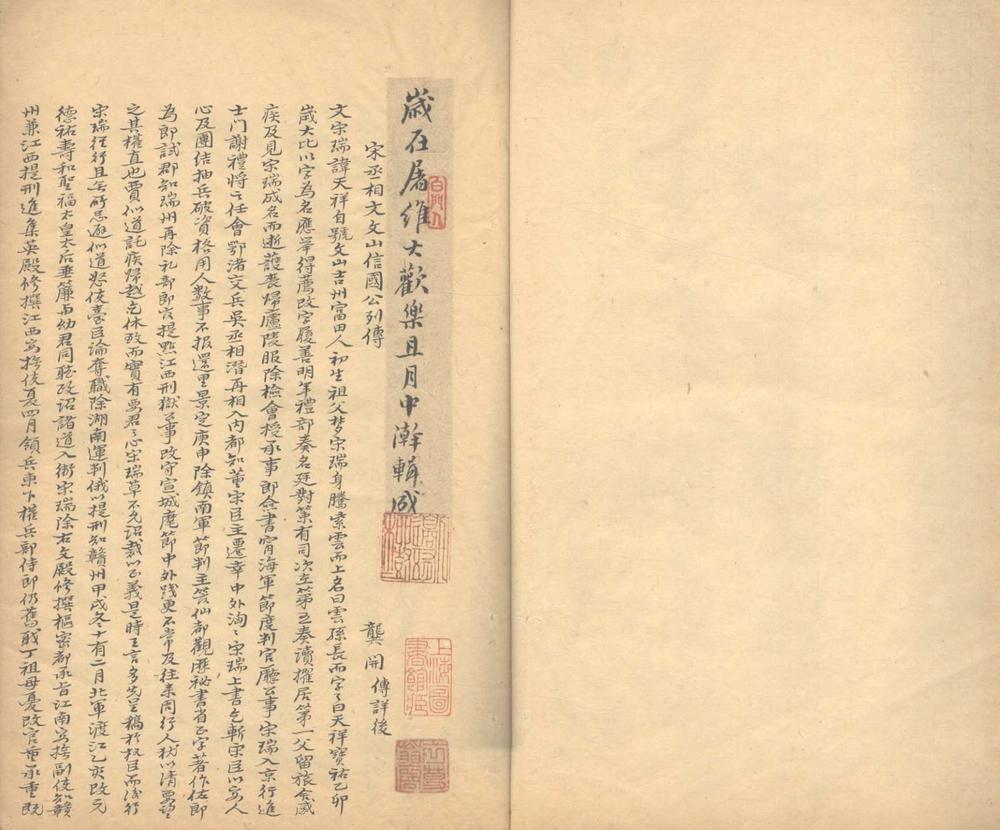 歲在屠維大歡樂且月中澣輯成
宋丞相文文山信國公列傳
龔開 傳詳後
文宋瑞諱天祥自號文山吉州富田人初生祖父夢宋瑞身騰紫雲而上名曰雲孫長而字之曰天祥寶祐乙卯
歲大比以字為名應舉得薦改字履善明年禮部奏名廷對策有司次在第五奏讀擢居第一父留旅舍感
疾及見宋瑞成名而逝護喪歸廬陵服除檢會授承事郎僉書甯海軍節度判官廳公事宋瑞入京行進
士門謝禮將之任會鄂渚交兵吳丞相潛再相入內都知董宋臣主遷幸中外洶〻宋瑞上書乞斬宋臣以安人
心及團結抽兵破資格用人數事不报還里景定庚申除鎮南軍節判主管仙都觀歷秘書省正字著作佐郎
為郎試郡知瑞州再除礼部郎官提點江西刑獄公事改守宣城麾節中外践更不常及往来周行人犹以清要望
之其權直也賈似道託疾歸越乞休致而實有要君之心宋瑞草不允詔裁以正義是時王言多先呈稿於权臣而後行
宋瑞徑行且無所忌避似道怒使臺臣論奪職除湖南運判俄以提刑知贛州甲戌冬十有二月北軍渡江乙亥改元
德祐壽和聖福太皇太后垂簾与幼君同聽政詔諸道入衛宋瑞除右文殿修撰樞密都承旨江南安撫副使知贛
州兼江西提刑進集英殿修撰江西安撫使夏四月領兵東下權兵部侍郎仍舊職丁祖母憂改官重承重既
上海圖書館藏